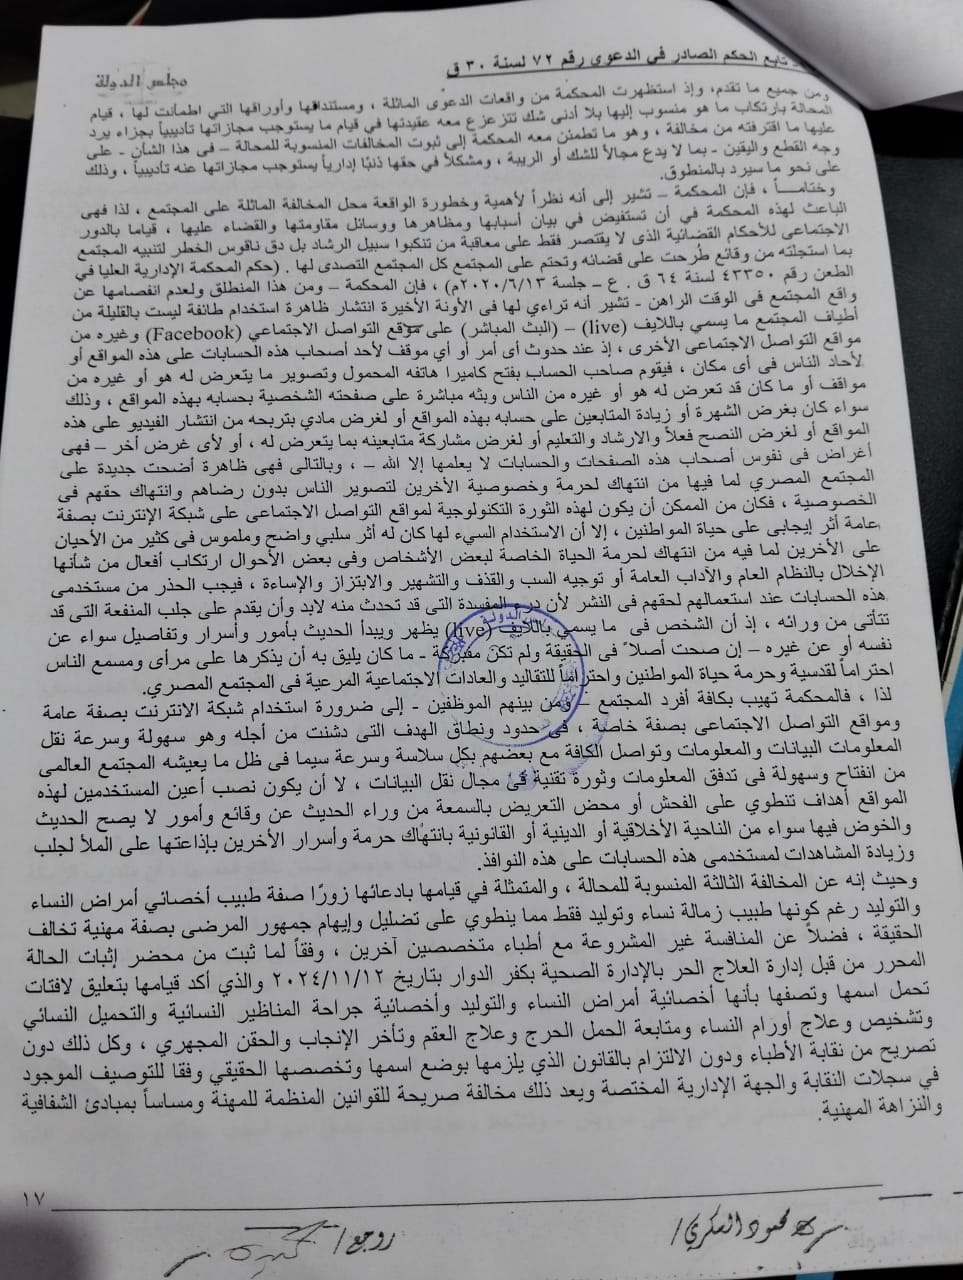 تابع الحكم الصادر في الدعوى رقم ٧٢ لسنة ٣٠ ق
مجلس الدولة
ومن جميع ما تقدم، وإذ استظهرت المحكمة من واقعات الدعوى الماثلة ، ومستنداتها وأوراقها التي اطمأنت لها ، قيام
المحالة بارتكاب ما هو منسوب إليها بلا أدنى شك تتزعزع معه عقيدتها في قيام ما يستوجب مجازاتها تأديبياً بجزاء يرد
عليها ما اقترفته من مخالفة ، وهو ما تطمئن معه المحكمة إلى ثبوت المخالفات المنسوبة للمحالة – في هذا الشأن - على
وجه القطع واليقين - بما لا يدع مجالاً للشك أو الريبة ، ومشكلاً في حقها ذنبًا إدارياً يستوجب مجازاتها عنه تأديبياً ، وذلك
على نحو ما سيرد بالمنطوق.
وختامـــاً ، فإن المحكمة – تشير إلى أنه نظراً لأهمية وخطورة الواقعة محل المخالفة الماثلة على المجتمع ، لذا فهى
الباعث لهذه المحكمة في أن تستفيض في بيان أسبابها ومظاهرها ووسائل مقاومتها والقضاء عليها ، قياما بالدور
الاجتماعى للأحكام القضائية الذى لا يقتصر فقط على معاقبة من تنكبوا سبيل الرشاد بل دق ناقوس الخطر لتنبيه المجتمع
بما استجلته من وقائع طرحت على قضائه وتحتم على المجتمع كل المجتمع التصدى لها . (حكم المحكمة الإدارية العليا في
الطعن رقم ٤٣٣٥٠ لسنة ٦٤ ق . ع – جلسة ٢٠٢٠/٦/١٣م) ، فإن المحكمة – ومن هذا المنطلق ولعدم انفصامها عن
واقع المجتمع في الوقت الراهن - تشير أنه تراءي لها في الأونة الأخيرة انتشار ظاهرة استخدام طائفة ليست بالقليلة من
أطياف المجتمع ما يسمي باللايف (live) – (البث المباشر) على موقع التواصل الاجتماعي (Facebook) وغيره من
مواقع التواصل الاجتماعى الأخرى ، إذ عند حدوث أى أمر أو أي موقف لأحد أصحاب هذه الحسابات على هذه المواقع أو
لأحاد الناس فى أى مكان ، فيقوم صاحب الحساب بفتح كاميرا هاتفه المحمول وتصوير ما يتعرض له هو أو غيره من
مواقف أو ما كان قد تعرض له هو أو غيره من الناس وبثه مباشرة على صفحته الشخصية بحسابه بهذه المواقع ، وذلك
سواء كان بغرض الشهرة أو زيادة المتابعين على حسابه بهذه المواقع أو لغرض مادي بتربحه من انتشار الفيديو على هذه
المواقع أو لغرض النصح فعلاً والارشاد والتعليم أو لغرض مشاركة متابعينه بما يتعرض له ، أو لأى غرض أخر – فهى
أغراض فى نفوس أصحاب هذه الصفحات والحسابات لا يعلمها إلا الله – ، وبالتالى فهى ظاهرة أضحت جديدة على
المجتمع المصري لما فيها من انتهاك لحرمة وخصوصية الأخرين لتصوير الناس بدون رضاهم وانتهاك حقهم فى
الخصوصية ، فكان من الممكن أن يكون لهذه الثورة التكنولوجية لمواقع التواصل الاجتماعى على شبكة الإنترنت بصفة
عامة أثر إيجابى على حياة المواطنين ، إلا أن الاستخدام السيء لها كان له أثر سلبي واضح وملموس فى كثير من الأحيان
على الأخرين لما فيه من انتهاك لحرمة الحياة الخاصة لبعض الأشخاص وفى بعض الأحوال ارتكاب أفعال من شأنها
الإخلال بالنظام العام والآداب العامة أو توجيه السب والقذف والتشهير والابتزاز والإساءة ، فيجب الحذر من مستخدمى
هذه الحسابات عند استعمالهم لحقهم فى النشر لأن درء المفسدة التى قد تحدث منه لابد وأن يقدم على جلب المنفعة التى قد
تتأتى من ورائه ، إذ أن الشخص فى ما يسمي باللايف (live) يظهر ويبدأ الحديث بأمور وأسرار وتفاصيل سواء عن
نفسه أو عن غيره – إن صحت أصلاً فى الحقيقة ولم تكن مفبركة - ما كان يليق به أن يذكرها على مرأى ومسمع الناس
احتراماً لقدسية وحرمة حياة المواطنين واحتراماً للتقاليد والعادات الاجتماعية المرعية فى المجتمع المصري.
لذا ، فالمحكمة تهيب بكافة أفرد المجتمع – ومن بينهم الموظفين - إلى ضرورة استخدام شبكة الانترنت بصفة عامة
ومواقع التواصل الاجتماعى بصفة خاصة ، فى حدود ونطاق الهدف التى دشنت من أجله وهو سهولة وسرعة نقل
المعلومات البيانات والمعلومات وتواصل الكافة مع بعضهم بكل سلاسة وسرعة سيما فى ظل ما يعيشه المجتمع العالمى
من انفتاح وسهولة فى تدفق المعلومات وثورة تقنية فى مجال نقل البيانات ، لا أن يكون نصب أعين المستخدمين لهذه
المواقع أهداف تنطوي على الفحش أو محض التعريض بالسمعة من وراء الحديث عن وقائع وأمور لا يصح الحديث
والخوض فيها سواء من الناحية الأخلاقية أو الدينية أو القانونية بانتهاك حرمة وأسرار الأخرين بإذاعتها على الملأ لجلب
وزيادة المشاهدات لمستخدمى هذه الحسابات على هذه النوافذ.
وحيث إنه عن المخالفة الثالثة المنسوبة للمحالة ، والمتمثلة في قيامها بادعائها زورًا صفة طبيب أخصائي أمراض النساء
والتوليد رغم كونها طبيب زمالة نساء وتوليد فقط مما ينطوي على تضليل وإيهام جمهور المرضى بصفة مهنية تخالف
الحقيقة ، فضلاً عن المنافسة غير المشروعة مع أطباء متخصصين آخرين ، وفقاً لما ثبت من محضر إثبات الحالة
المحرر من قبل إدارة العلاج الحر بالإدارة الصحية بكفر الدوار بتاريخ ٢٠٢٤/١١/١٢ والذي أكد قيامها بتعليق لافتات
تحمل اسمها وتصفها بأنها أخصائية أمراض النساء والتوليد وأخصائية جراحة المناظير النسائية والتجميل النسائي
وتشخيص وعلاج أورام النساء ومتابعة الحمل الحرج وعلاج العقم وتأخر الإنجاب والحقن المجهري ، وكل ذلك دون
تصريح من نقابة الأطباء ودون الالتزام بالقانون الذي يلزمها بوضع اسمها وتخصصها الحقيقي وفقا للتوصيف الموجود
في سجلات النقابة والجهة الإدارية المختصة ويعد ذلك مخالفة صريحة للقوانين المنظمة للمهنة ومساساً بمبادئ الشفافية
والنزاهة المهنية.
١٧
محمود العكري/
روجع/